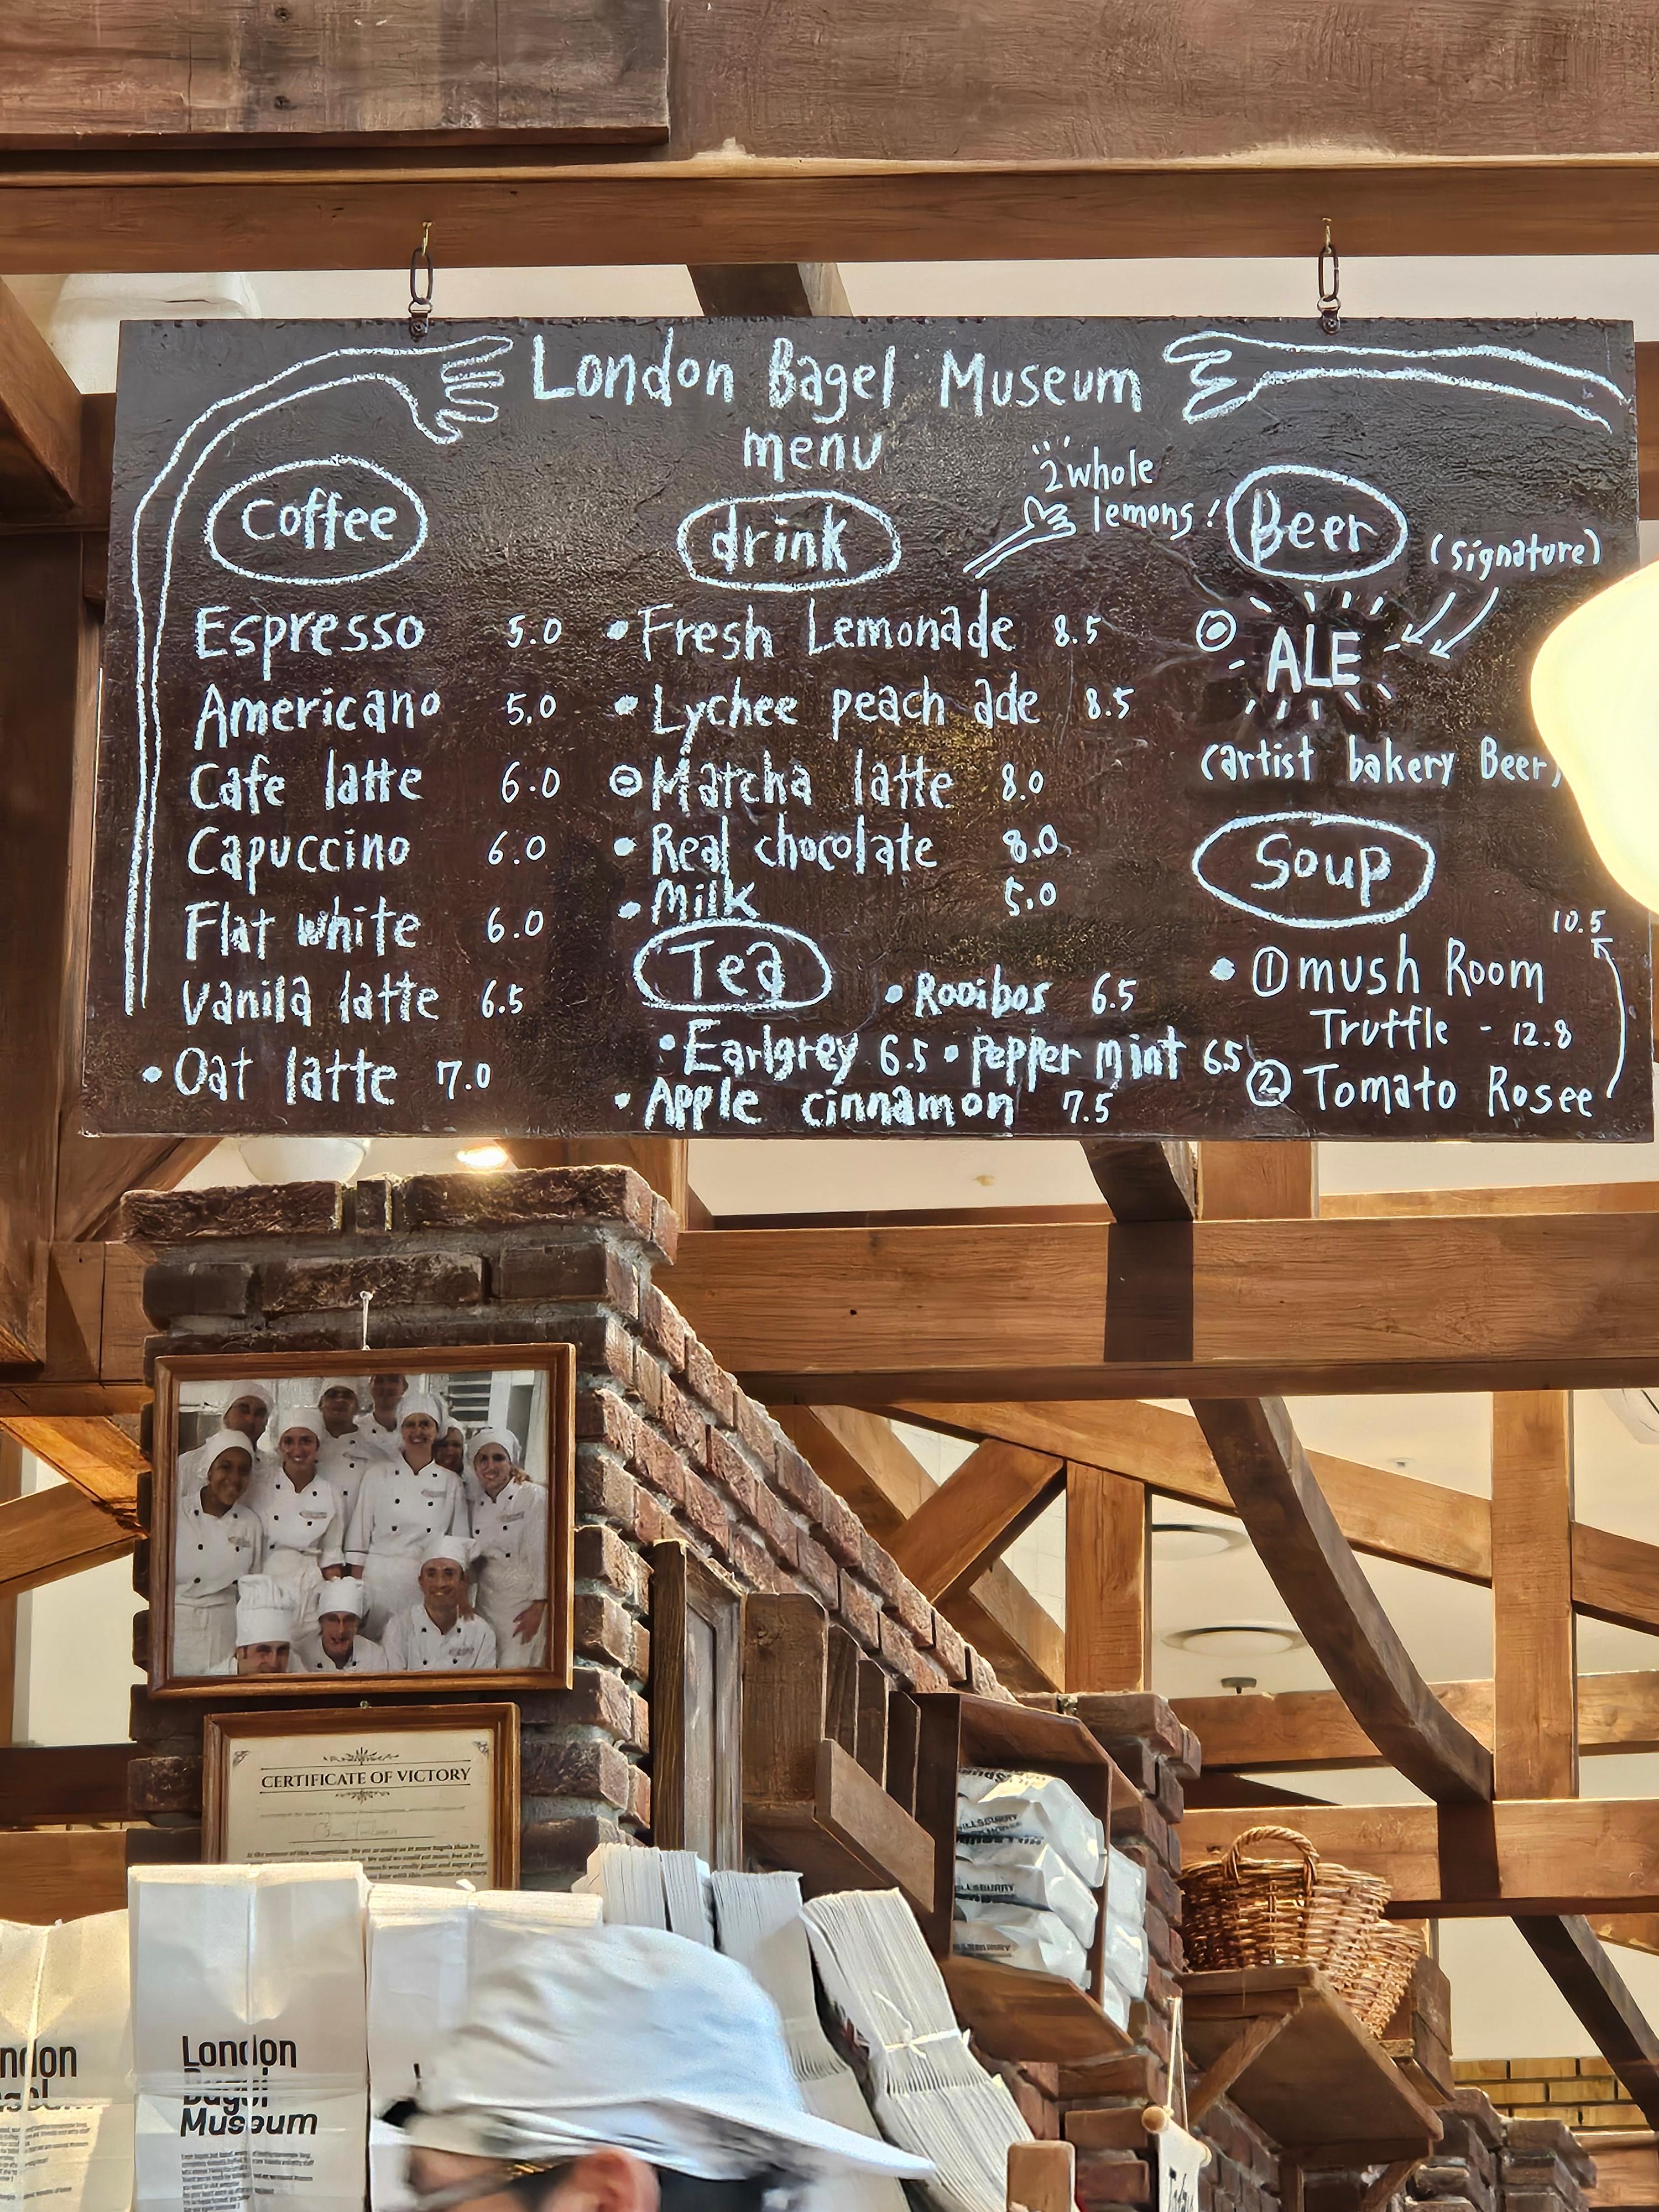 London Bagel Museum
menu
coffee
Espresso 5.0
Americano 5.0
Cafe latte 6.0
Capuccino 6.0
Flat white 6.0
Vanila latte 6.5
• Oat latte 7.0
drink
2 whole
lemons!
• Fresh Lemonade 8.5
• Lychee peach ade 8.5
Matcha latte 8.0
• Real chocolate 8.0
• Milk 5.0
Tea
• Rooibos 6.5
• Earlgrey 6.5 • Pepper mint 6.5
• Apple cinnamon 7.5
Beer
(signature)
ALE
(artist bakery Beer)
Soup
10.5
• ① mush Room
Truffle - 12.8
② Tomato Rosee
CERTIFICATE OF VICTORY
London
Bagel
Museum